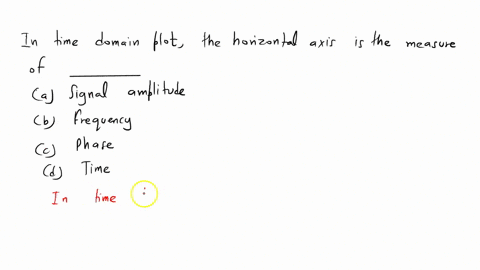 In time domain plot, the horizontal axis is the measure
of ________
(a) Signal amplitude
(b) Frequency
(c) Phase
(d) Time
In time